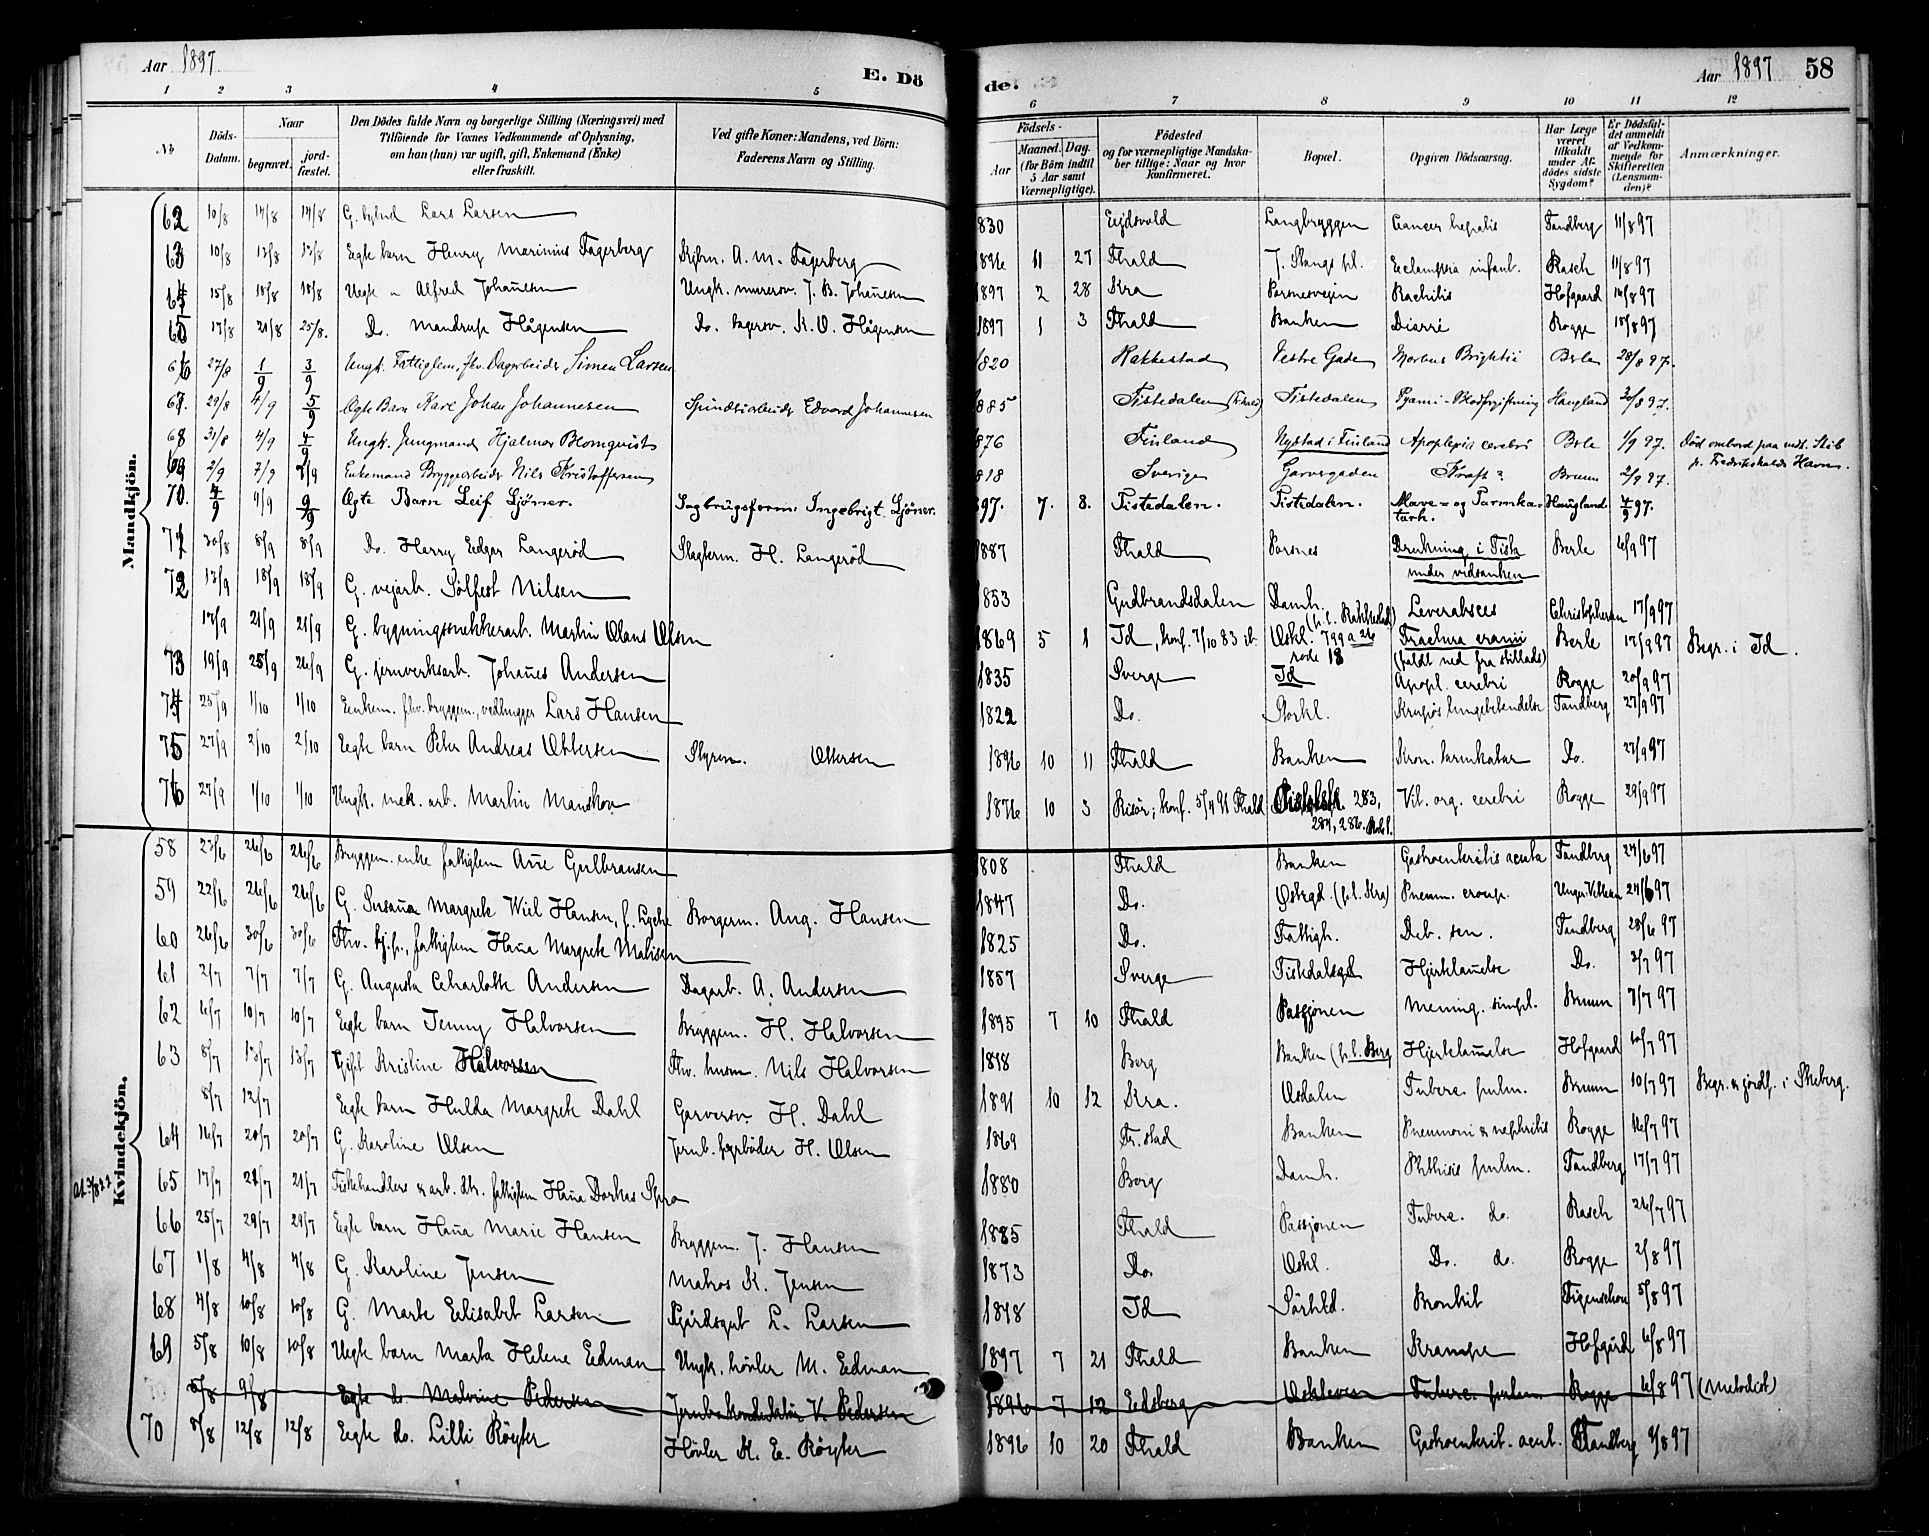 Aar 1897
E. Dö
de.
Aar 1897 58
1 2 3 4 5 6 7 8 9 10 11 12
№
Döds-Datum.
Naar
begravet.
jord-fæstet.
Den Dödes fulde Navn og borgerlige Stilling (Næringsvei) med
Tilföiende for Voxnes Vedkommende af Oplysning,
om han (hun) var ugift, gift, Enkemand (Enke)
eller fraskilt.
Ved gifte Koner: Mandens, ved Börn:
Faderens Navn og Stilling.
Födsels-
Aar
Maaned. Dag.
(for Börn indtil
5 Aar samt
Værnepligtige).
Födested
og for værnepligtige Mandska-
ber tillige: Naar og hvor
konfirmeret.
Bopæl.
Opgiven Dödsaarsag.
Har Læge
været
tilkaldt
under Af-
dödes sidste
Sygdom?
Er Dödsfal-
det anmeldt
af Vedkom-
mende for
Skifteretten
(Lensman-
den)?
Anmærkninger.
Mandkjön.
62 10/8 14/8 14/8 G. Lars Larsen 1830 Eidsvold Langbryggen Cancer hepatis Tandberg 11/8 97
63 10/8 13/8 13/8 Egte barn Henry Marinius Fagerberg A. M. Fagerberg 1896 11 27 Fhald J. Stangs pl. Eclampsia infant. Rasch 11/8 97
64 15/8 18/8 18/8 Uegte " Alfred Johannesen Ungk. murersv. J. B. Johannesen 1897 2 28 Kra Porsnesvejen Rachitis Hofgaard 16/8 97
65 17/8 21/8 25/8. Do. Mandrup Hågensen Do. bagersv. K. O. Hågensen 1897 1 3 Fhald Banken Diarré Rogge 18/8 97
66 27/8 1/9 3/9 Ungk. Fattiglem, fhv. Dagarbeider Simen Larsen 1820 Rakkestad Vestre Gade Morbus Brightii Berle 28/8 97.
67. 29/8 4/9 5/9 Ægte Barn Kare Johan Johannesen Spinderiarbeider Edvard Johannesen 1885 Tistedalen (Fhald) Tistedalen Pyæmi-Blodforgiftning Haugland 30/8 97.
68 31/8 4/9 4/9 Ungk. Jungmand Hjalmar Blomqvist 1876 Finland Nystad i Finland Apoplexia cerebri Berle 1/9 97. Död ombord paa vedk. Skib
p. Fredrikshalds Havn.
69 2/9 7/9 2/9 Enkemand Bryggearbeider Nils Kristoffersen 1818 Sverige Garvergaden Kræft? Bruun 2/9 97.
70. 4/9 9/9 9/9 Ægte Barn Leif Ljömer. Sagbrugsform. Ingebrigt Ljömer. 1897. 7. 8. Tistedalen. Tistedalen. Mave- og Tarmka-
tarh. Haugland. 4/9 97.
71 30/8 8/9 8/9 Do. Harry Edgar Langeröd Slagterm. H. Langeröd 1887 Fhald Porsnes Drukning i Tista
under vidsanken Berle 6/9 97
72 13/9 18/9 18/9 G. vejarb. Sölfest Nilsen 1853 Gudbrandsdalen Damh. Leverabsces Christophersen 17/9 97
17/9 21/9 21/9 G. bygningssnekkerarb. Martin Olaus Olsen 1869 5 1 Id, konf. 7/10 83 ib. Oskl. 799 a 26
rode 18 Fractura cranii
(faldt ned fra stillads) Berle 17/9 97 Begr. i Id.
73 19/9 25/9 26/9 G. jernverksarb. Johannes Andersen 1835 Sverge Id Apopl. cerebri Rogge 20/9 97
74 25/9 1/10 1/10 Enkem. fhv. bryggem., vedhugger Lars Hansen 1822 Do. Storkl. Krupös lungebetendelse Tandberg 27/9 97
75 27/9 2/10 2/10 Egte barn Peter Andreas Ottersen Styrm. Ottersen 1896 10 11 Fhald Banken Kron. tarmkatar Do. 27/9 97
76 27/9 1/10 1/10 Ungk. mek. arb. Martin Manskov 1876 10 3 Risör; konf. 5/4 91 Fhald 283,
284, 286. Vit. org. cerebri Rogge 29/9 97
Kvindekjön.
58 23/6 26/6 26/6 Bryggem. enke fattiglem Anne Gulbransen 1808 Fhald Banken Gastroenteritis acuta Tandberg 24/6 97
59 22/6 26/6 26/6 G. Susanna Margrete Wiel Hansen, f. Lyche Borgerm. Aug. Hansen 1847 Do. Ostegd. (p.t. Kra) Pneum. croup. 24/6 97
60 26/6 30/6 30/6 Fhv. tj.p., fattiglem Hanna Margrete Mathisen 1825 Do. Fattigh. Deb. sen. Tandberg 28/6 97
61 2/7 7/7 7/7 G. Augusta Charlotte Andersen Dagarb. A. Andersen 1857 Sverge Tistedalsgd Hjertelamelse Do. 3/7 97
62 6/7 10/7 10/7 Egte barn Jenny Halvorsen Bryggem. H. Halvorsen 1895 7 10 Fhald Passjonen Mening. simpl. Bruun 7/7 97
63 8/7 13/7 13/7 Gift Kristine Halvorsen Fhv. husm. Nils Halvorsen 1818 Berg Banken (p.t. Berg Hjertelamelse Hofgaard 10/7 97
8/7 12/7 Egte barn Hulda Margrete Dahl Garversv. H. Dahl 1891 10 12 Kra. Osdalen Tuberc. pulm. Bruun 10/7 97 Begr. & jordf. i Skeberg.
64 16/7 20/7 20/7 G. Karoline Olsen Jernb. fyrböder H. Olsen 1869 Fr.stad Banken Pneumoni & nephritis Rogge 16/7 97
65 17/7 21/7 21/7 Fiskehandlers & arb. dtr. fattiglem Hanna Dorkas Spro 1880 Borg Damh. Phthisis pulm. Tandberg 17/7 97
66 25/7 29/7 29/7 Egte barn Hanna Marie Hansen Bryggem. J. Hansen 1885 Fhald Passjonen Tuberc. do. Rasch 26/7 97
67 1/8 4/8 4/8 G. Karoline Jensen Matros K. Jensen 1873 Do. Oskl. Do. do. Rogge 2/8 97
68 4/8 10/8 10/8 G. Marte Elisabet Larsen Gårdsgut L. Larsen 1818 Id Sörhld. Bronkit Figenschou 5/8 97
69 5/8 10/8 10/8 Uegte barn Marta Helene Edman Ungk. hövler M. Edman 1897 7 21 Fhald Banken Krampe Hofgård 6/8 97
5/8 9/8 Egte do. Malvine Pedersen Jernb.konduktör K. Pedersen 1896 7 12 Edsberg Oskleven Tuberc. pulm. Rogge 6/8 97 (Metodist)
70 8/8 12/8 12/8 Egte do. Lilli Röyter Hövler K. E. Röyter 1896 10 20 Fhald Banken Gastroenterit. acut. Tandberg 9/8 97